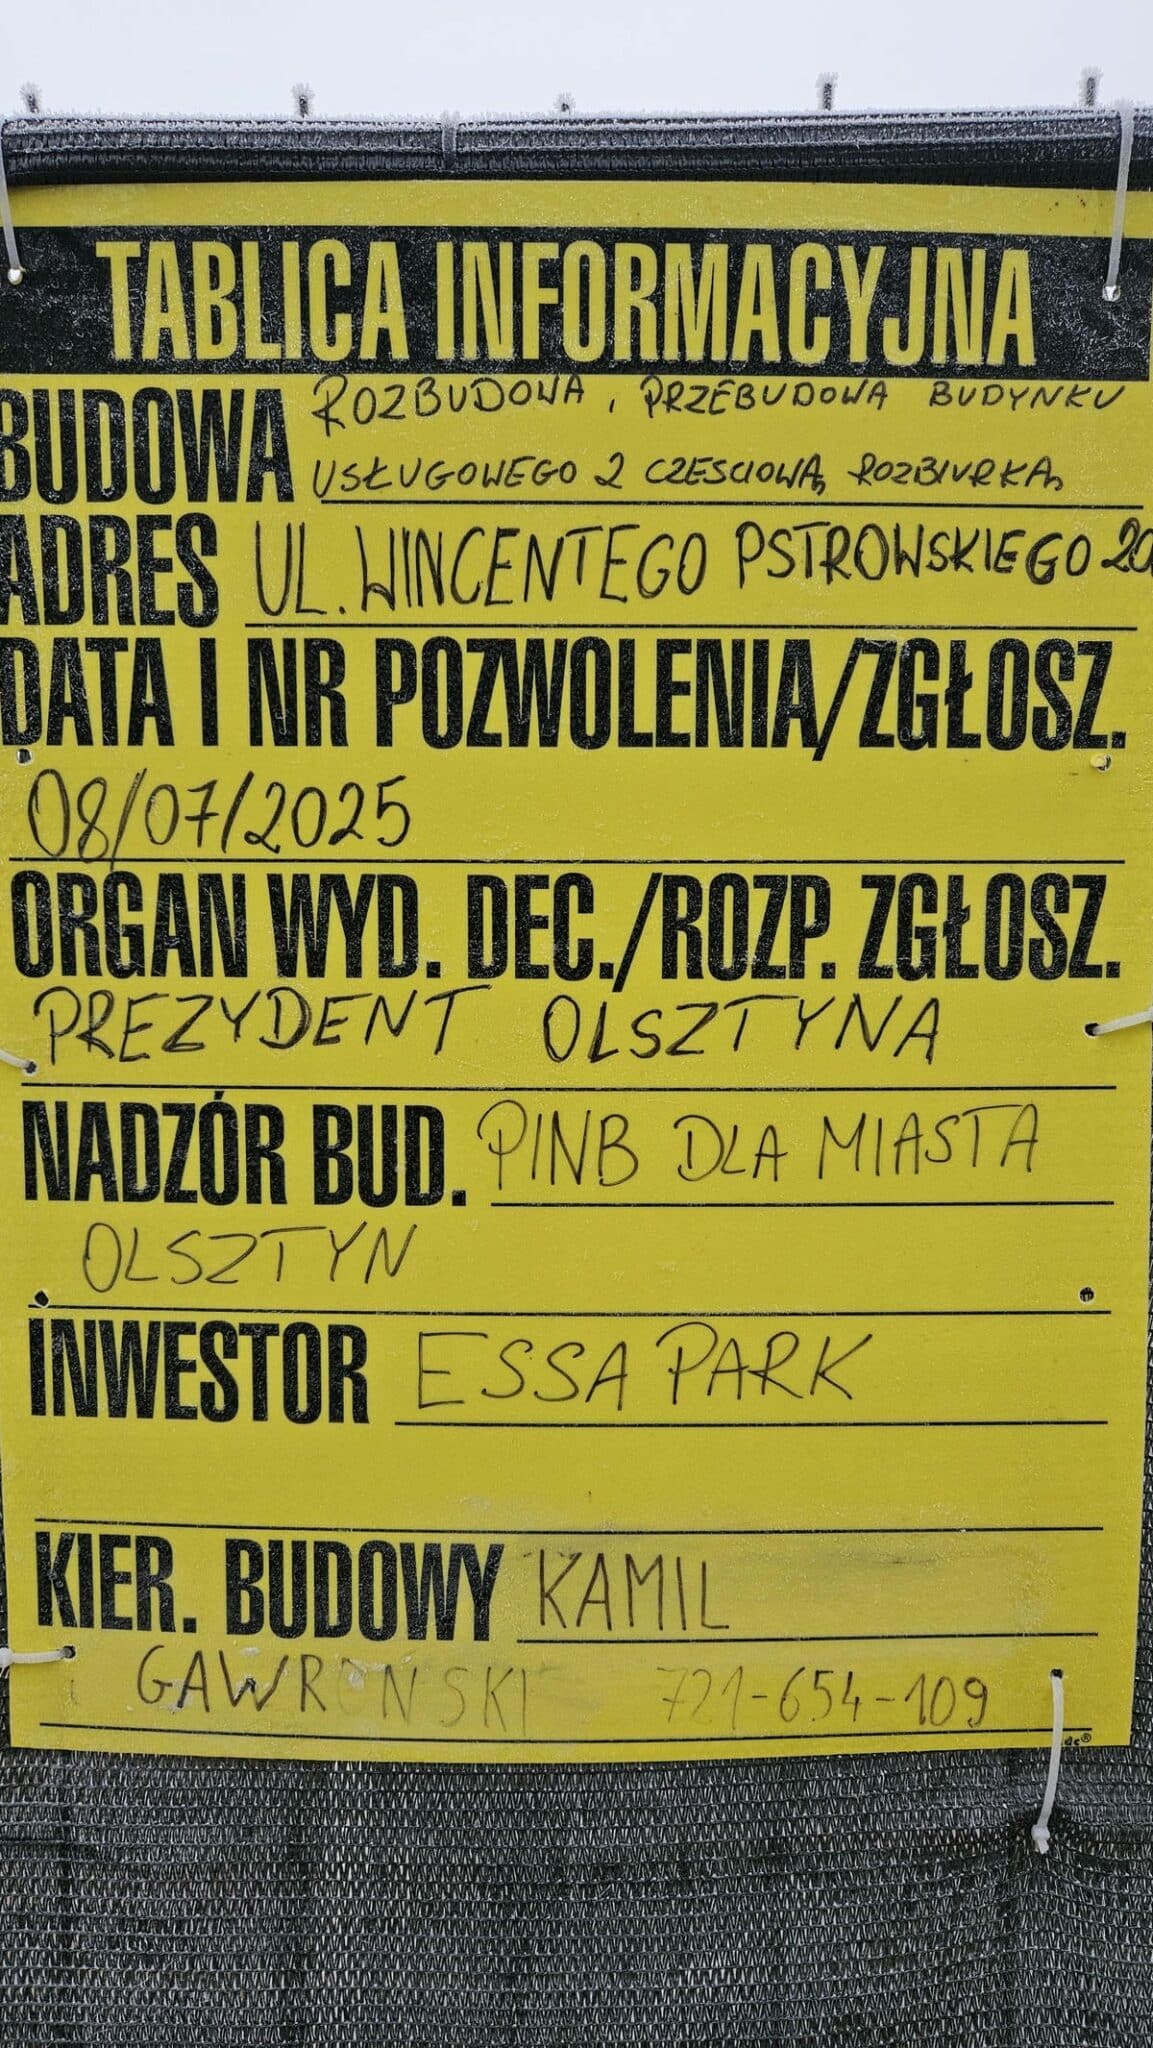 TABLICA INFORMACYJNA
BUDOWA ROZBUDOWA, PRZEBUDOWA BUDYNKU
USŁUGOWEGO Z CZESCIOWĄ ROZBIURKĄ
ADRES UL. WINCENTEGO PSTROWSKIEGO 20
DATA I NR POZWOLENIA/ZGŁOSZ.
08/07/2025
ORGAN WYD. DEC./ROZP. ZGŁOSZ.
PREZYDENT OLSZTYNA
NADZÓR BUD. PINB DLA MIASTA
OLSZTYN
INWESTOR ESSA PARK
KIER. BUDOWY KAMIL
GAWRONSKI 721-654-109